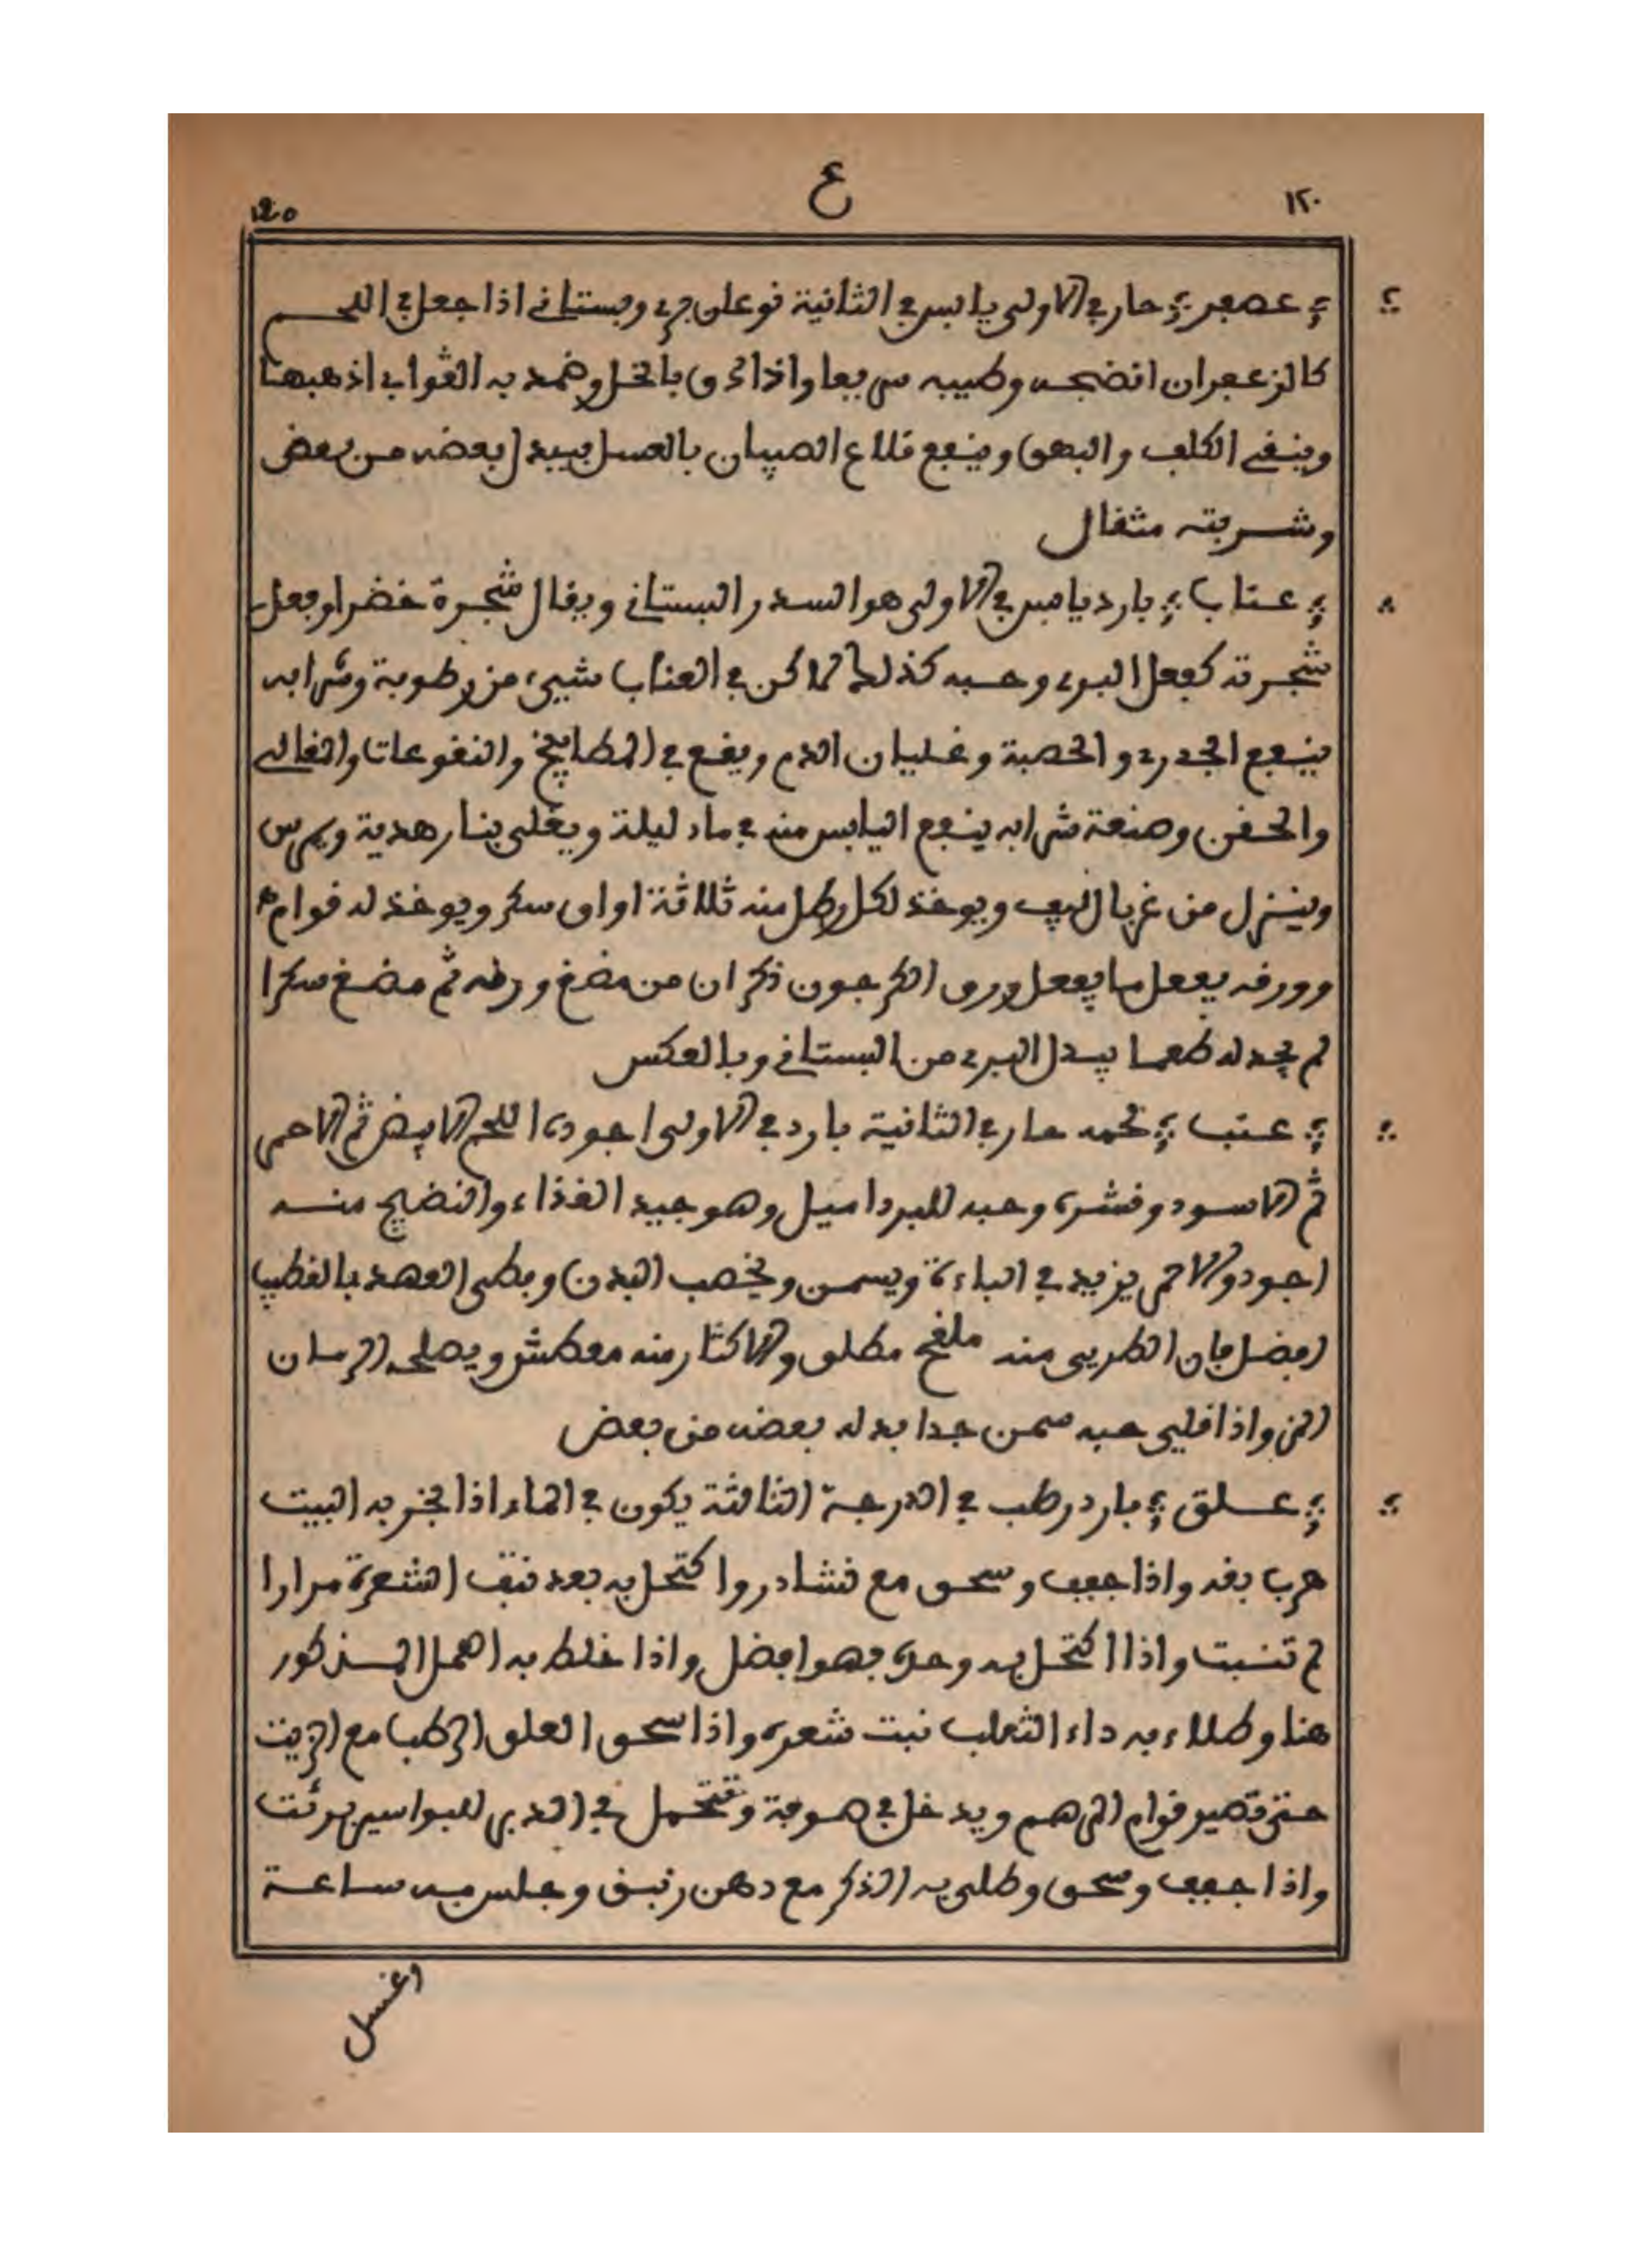 ١٢٠ ع 120
عصفر حار في الاولى يابس في الثانية نوعان بري وبستاني اذا جعل في اللحم
كالزعفران انضجه وطيبه سريعا واذا دق بالخل وضمد به القوابي اذهبها
وينقي الكلف والبهق وينفع قلاع الصبيان بالعسل يبدل بعضه من بعض
وشربته مثقال
عناب بارد يابس في الاولى هو السدر البستاني ويقال شجرة خضرا وفعل
شجرته كفعل البري وحبه كذلك لاكن في العناب شيىء من رطوبة وشرابه
ينفع الجدري والحصبة وغليان الدم ويقع في المطابيخ والنقوعات والمغالي
والحقن وصنعة شرابه ينفع اليابس منه في ماء ليلة ويغلى بنار هدية ويمرس
وينزل من غربال ويوخذ لكل رطل منه ثلاثة اواق سكر ويوخذ له قوام
وورقه يفعل ما يفعل ورق الكرجون ذكر ان من مضغ ورقه ثم مضغ سكرا
لم يجد له طعما يبدل البري من البستاني وبالعكس
عنب لحمه حار في الثانية بارد في الاولى اجوده اللحم الابيض ثم الاحمر
ثم الاسود وقشره وحبه للبرد اميل وهو جيد الغذاء والنضيج منه
اجود والاحمر يزيد في الباءة ويسمن ويخصب البدن وبطى العهد بالقطب
افضل فان الطري منه ملفخ مطلق والاكثار منه معطش ويصلحه الرمان
المز واذا قلي حبه سمن جدا بدله بعضه من بعض
علق بارد رطب في الدرجة الثالثة يكون في الماء اذا بخر به البيت
هرب بقه واذا جفف وسحق مع نشادر واكتحل به بعد نتف الشعرة مرارا
لم تنبت واذا اكتحل به وحده فهو افضل واذا خلط به اهمل المذكور
هنا وطلاء به داء الثعلب نبت شعره واذا سحق العلق الرطب مع الزيت
حتى تصير قوام المرهم ويدخل في صوفة وتتحمل في الدبر للبواسير برئت
واذا جفف وسحق وطلي به الذكر مع دهن زنبق وجلس به ساعة
اغسل